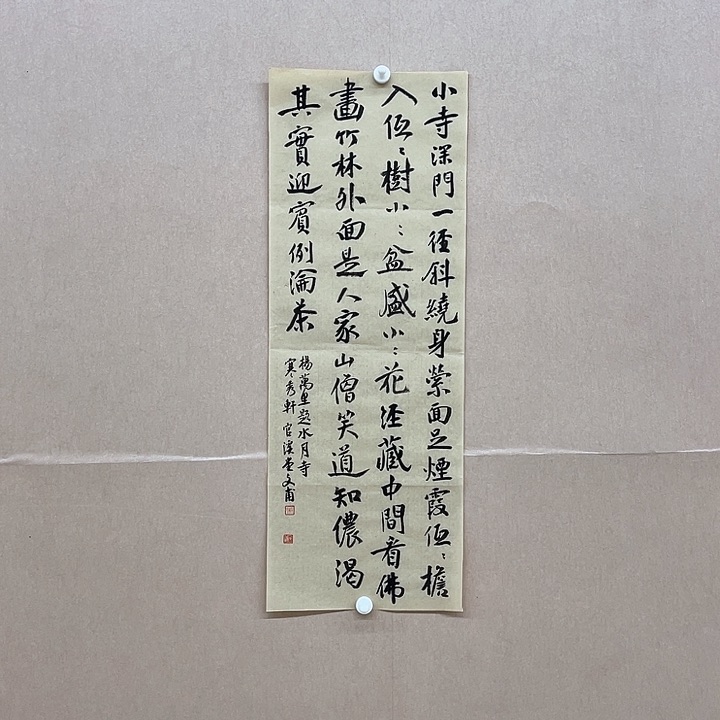 小寺深門一徑斜繞身縈面足煙霞低〻檐
入低〻樹小〻盆盛小〻花經藏中間看佛
畫竹林外面是人家山僧笑道知儂渴
其實迎賓例淪茶
楊萬里題水月寺
寒秀軒 官溪堂文甫